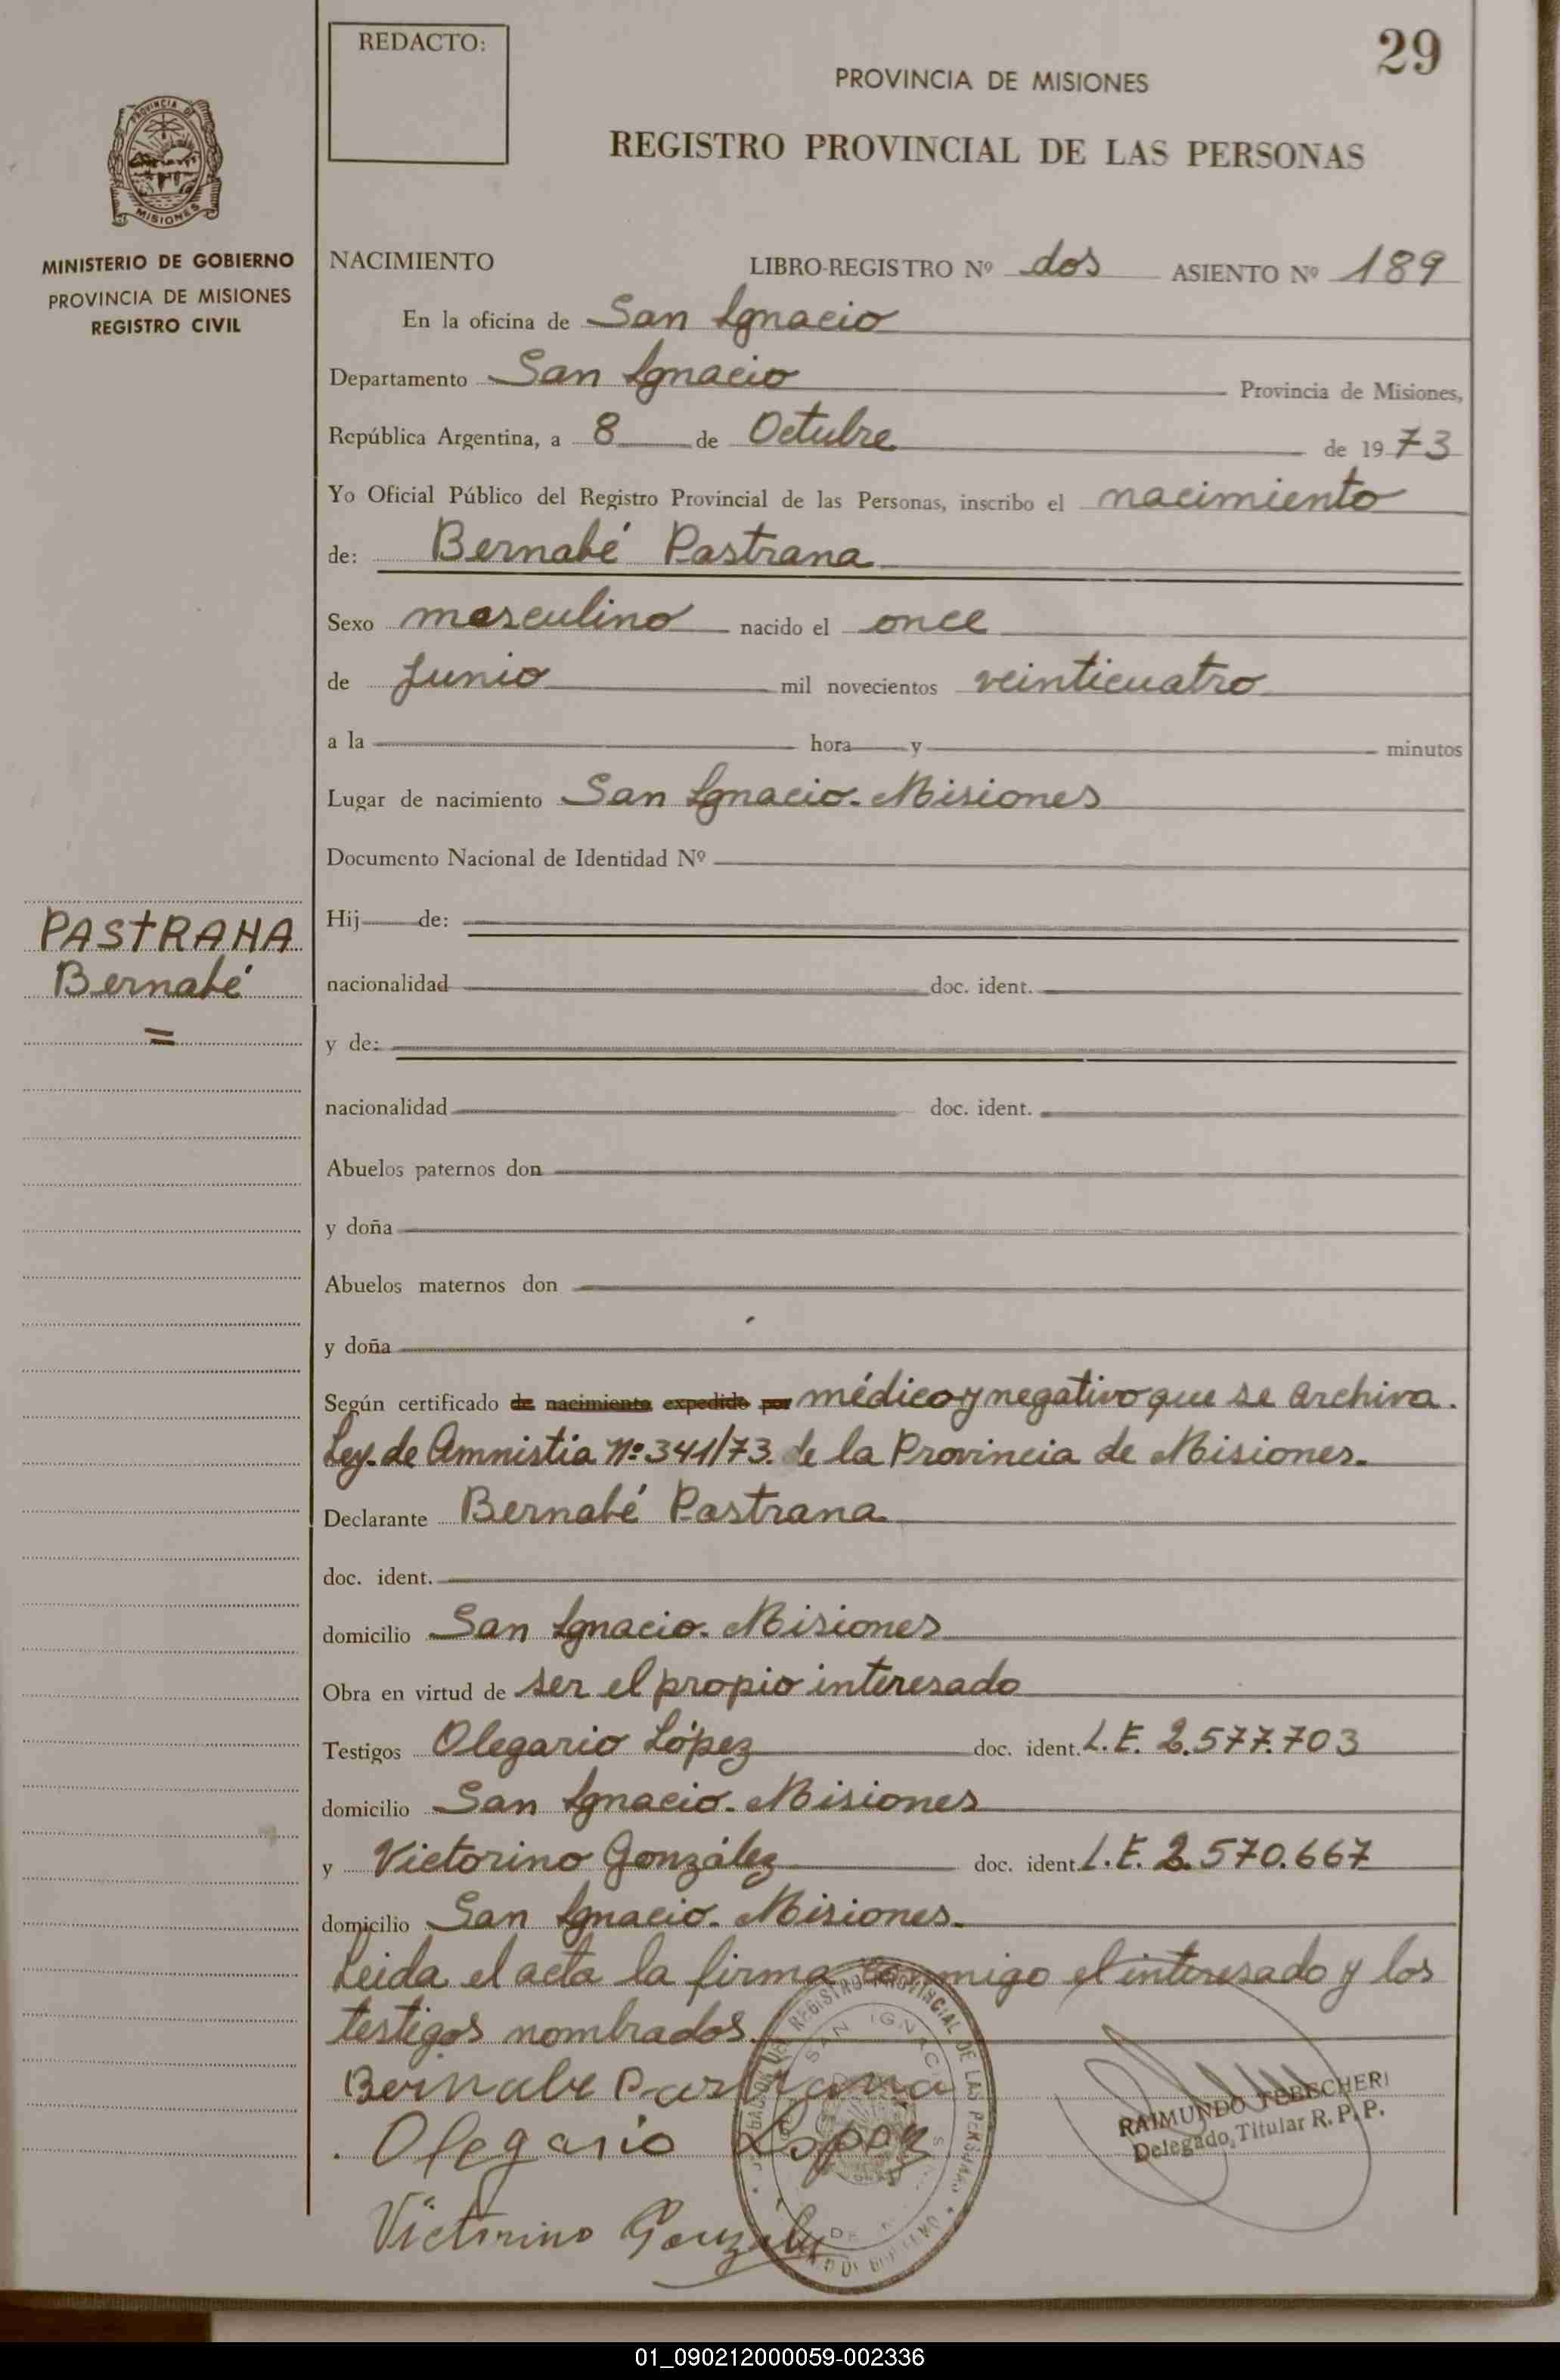 REDACTO:
29
PROVINCIA DE MISIONES
REGISTRO PROVINCIAL DE LAS PERSONAS
PROVINCIA DE
MISIONES
MINISTERIO DE GOBIERNO
PROVINCIA DE MISIONES
REGISTRO CIVIL
NACIMIENTO LIBRO-REGISTRO Nº dos ASIENTO Nº 189
En la oficina de San Ignacio
Departamento San Ignacio Provincia de Misiones,
República Argentina, a 8 de Octubre de 1973
Yo Oficial Público del Registro Provincial de las Personas, inscribo el nacimiento
de: Bernabé Pastrana
Sexo masculino nacido el once
de Junio mil novecientos veinticuatro
a la hora y minutos
Lugar de nacimiento San Ignacio. Misiones
Documento Nacional de Identidad Nº
PASTRANA
Bernabé
=
Hij de:
nacionalidad doc. ident.
y de:
nacionalidad doc. ident.
Abuelos paternos don
y doña
Abuelos maternos don
y doña
Según certificado de nacimiento expedido por médico y negativo que se archiva.
Ley de Amnistia Nº 341/73. de la Provincia de Misiones.
Declarante Bernabé Pastrana
doc. ident.
domicilio San Ignacio. Misiones
Obra en virtud de ser el propio interesado
Testigos Olegario López doc. ident. L.E. 2.577.703
domicilio San Ignacio. Misiones
y Victorino González doc. ident. L.E. 2.570.667
domicilio San Ignacio. Misiones.
Leida el acta la firma conmigo el interesado y los
testigos nombrados.
Bernabe Pastrana
Olegario Lopez
Victorino Gonzalez
REGISTRO PROVINCIAL DE LAS PERSONAS
SAN IGNACIO
RAIMUNDO TEBESCHERI
Delegado Titular R. P. P.
01_090212000059-002336